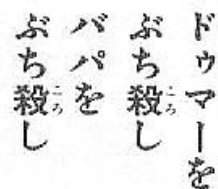 ドゥマーを
ぶち殺し
ババを
ぶち殺し